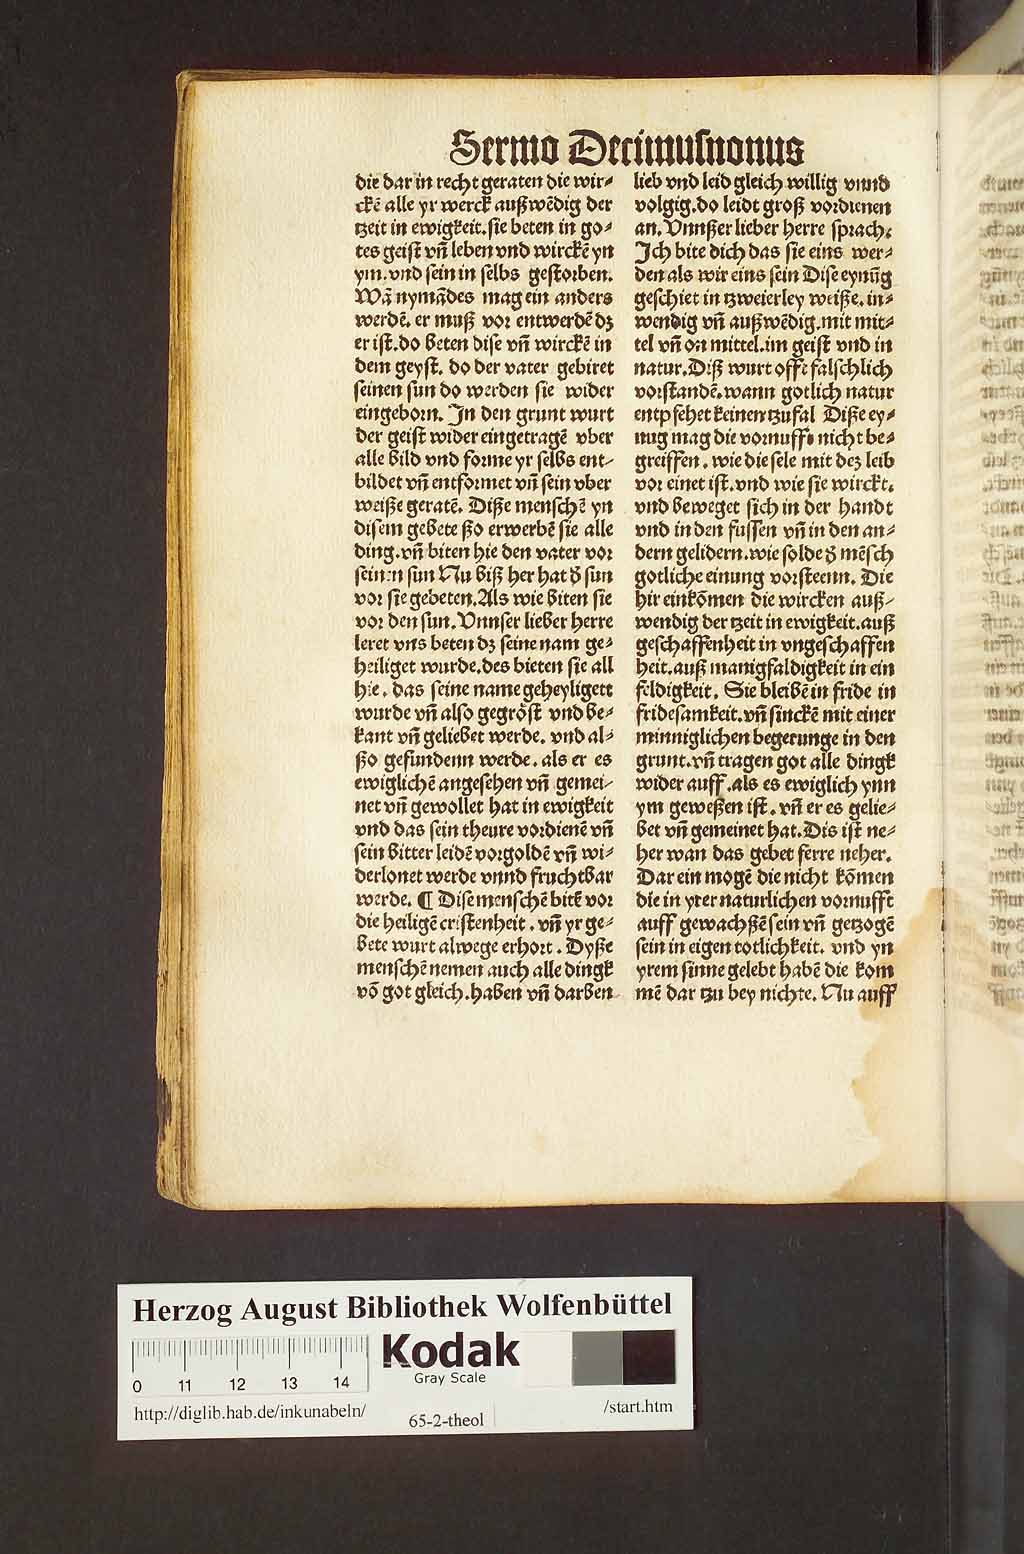 Sermo Decimusnonus
die dar in recht geraten die wir⸗
ckē alle yr werck außwēdig der
tzeit in ewigkeit. sie beten in go⸗
tes geist vn̄ leben vnd wirckē yn
ym. vnd sein in selbs gestorben.
Wā nymādes mag ein anders
werdē. er muß vor entwerdē dz
er ist. do beten dise vn̄ wirckē in
dem geyst. do der vater gebiret
seinen sun do werden sie wider
eingeborn. In den grunt wurt
der geist wider eingetragē vber
alle bild vnd forme yr selbs ent⸗
bildet vn̄ entformet vn̄ sein vber
weiße geratē. Diße menschē yn
disem gebete ßo erwerbē sie alle
ding. vn̄ biten hie den vater vor
seinen sun Nu biß her hat d̄ sun
vor sie gebeten. Als wie biten sie
vor den sun. Vnnser lieber herre
leret vns beten dz seine nam ge⸗
heiliget wurde. des bieten sie all
hie. das seine name geheyligett
wurde vn̄ also gegröst vnd be⸗
kant vn̄ geliebet werde. vnd al⸗
ßo gefundenn werde. als er es
ewiglichē angesehen vn̄ gemei⸗
net vn̄ gewollet hat in ewigkeit
vnd das sein theure vordienē vn̄
sein bitter leidē vorgoldē vn̄ wi⸗
derlonet werde vnnd fruchtbar
werde. ¶ Dise menschē bitē vor
die heiligē cristenheit. vn̄ yr ge⸗
bete wurt alwege erhort. Dyße
menschē nemen auch alle dingk
vō got gleich. haben vn̄ darben
lieb vnd leid gleich willig vnnd
volgig. do leidt groß vordienen
an. Vnnßer lieber herre sprach.
Ich bite dich das sie eins wer⸗
den als wir eins sein Dise eynūg
geschiet in tzweierley weiße. in⸗
wendig vn̄ außwēdig. mit mit⸗
tel vn̄ on mittel. im geist vnd in
natur. Diß wurt offt falschlich
vorstandē. wann gotlich natur
entpfehet keinen tzufal Diße ey⸗
nug mag die vornufft nicht be⸗
greiffen. wie die sele mit dez leib
vor einet ist. vnd wie sie wirckt.
vnd beweget sich in der handt
vnd in den fussen vn̄ in den an⸗
dern gelidern. wie solde d̄ mēsch
gotliche einung vorsteenn. Die
hir einkōmen die wircken auß⸗
wendig der tzeit in ewigkeit. auß
geschaffenheit in vngeschaffen
heit. auß manigfaldigkeit in ein
feldigkeit. Sie bleibē in fride in
fridesamkeit. vn̄ sinckē mit einer
minniglichen begerunge in den
grunt. vn̄ tragen got alle dingk
wider auff. als es ewiglich ynn
ym geweßen ist. vn̄ er es gelie⸗
bet vn̄ gemeinet hat. Dis ist ne⸗
her wan das gebet ferre neher.
Dar ein mogē die nicht kōmen
die in yrer naturlichen vornufft
auff gewachßē sein vn̄ getzogē
sein in eigen totlichkeit. vnd yn
yrem sinne gelebt habē die kom
mē dar tzu bey nichte. Nu auff
Herzog August Bibliothek Wolfenbüttel
Kodak
Gray Scale
0 11 12 13 14
http://diglib.hab.de/inkunabeln/ 65-2-theol /start.htm